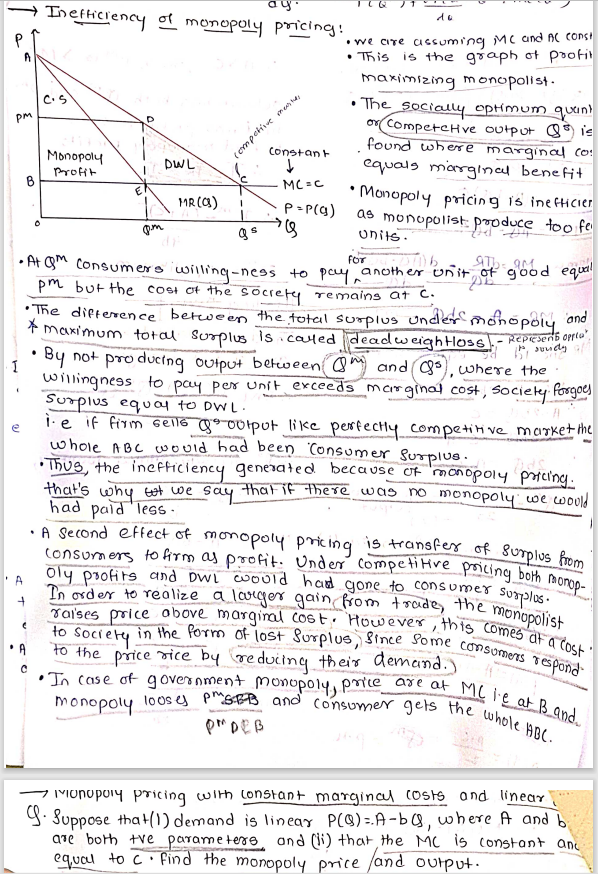 → Inefficiency of monopoly pricing:
P
A
C.S
Pm
D
Monopoly
Profit
DWL
competitive market
constant
↓
B
E
C
MC=C
MR(Q)
P=P(Q)
0
Qm
Qs
Q
• we are assuming MC and AC const
• This is the graph of profit
maximizing monopolist.
• The socially optimum quant
or competetive output Qs is
found where marginal cos
equals marginal benefit
• Monopoly pricing is inefficien
as monopolist produce too fe
units.
• At Qm consumers willing-ness to pay for another unit of good equal
Pm but the cost of the society remains at c.
• The difference between the total surplus under monopoly and
* maximum total surplus is called deadweight loss - Represents
• By not producing output between Qm and Qs, where the
willingness to pay per unit exceeds marginal cost, society forgoes
surplus equal to DWL.
i.e if firm sells Qs output like perfectly competitive market the
whole ABC would had been consumer surplus.
• Thus, the inefficiency generated because of monopoly pricing.
that's why we say that if there was no monopoly we would
had paid less.
• A second effect of monopoly pricing is transfer of surplus from
consumers to firm as profit. Under competitive pricing both monop-
oly profits and DWL would had gone to consumer surplus.
In order to realize a larger gain from trade, the monopolist
raises price above marginal cost. However, this comes at a cost
to society in the form of lost surplus, since some consumers respond
to the price rice by reducing their demand.
• In case of government monopoly, price are at MC i.e at B and
monopoly looses and consumer gets the whole ABC.
PmDEB
→ Monopoly pricing with constant marginal costs and linear
Q. Suppose that (i) demand is linear P(Q)=A-bQ, where A and b
are both +ve parameters and (ii) that the MC is constant and
equal to c. find the monopoly price /and output.